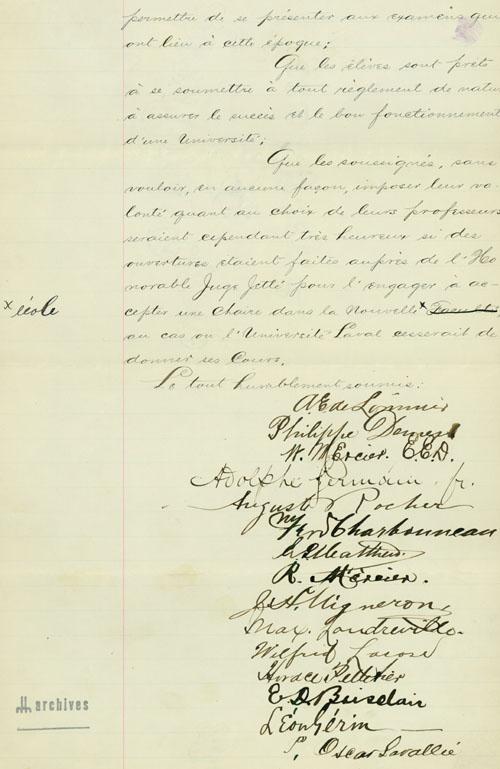 permettre de se présenter aux examens qui
ont lieu à cette époque;
Que les élèves sont prêts
à se soumettre à tout règlement de natur
à assurer le succès et le bon fonctionnement
d'une Université;
Que les soussignés, sans
vouloir, en aucune façon, imposer leur vo-
lonté quant au choix de leurs professeurs
seraient cependant très heureux si des
ouvertures étaient faites auprès de l'Ho
norable Juge Jetté pour l'engager à ac-
x école
cepter une Chaire dans la Nouvelle x Faculté
au cas ou l'Université Laval cesserait de
donner ses Cours.
Le tout humblement soumis:
A. E. de Lorimier
Philippe Demers
W. Mercier. E.E.D.
Adolphe Germain jr.
Auguste Pocher
Ferd Charbonneau
R. Mercier.
J. H. Vigneron
Max. Landreville.
Wilfrid Lacose
Horace Pelletier
E. D. Boisclair
Léon Gérin
Oscar Lavallée
archives